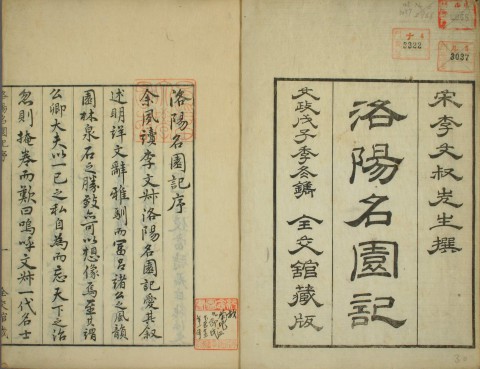 宋李文叔先生撰
洛陽名園記
文政戊子季冬鐫 全交舘藏版
洛陽名園記序
余夙讀李文叔洛陽名園記愛其叙
述明詳文辭雅馴而冨呂諸公之風韻
園林泉石之勝致亦可以想像焉至其謂
公卿大夫以一己之私自為而忘天下之治
忽則掩卷而歎曰嗚呼文叔一代名士
2222
2027